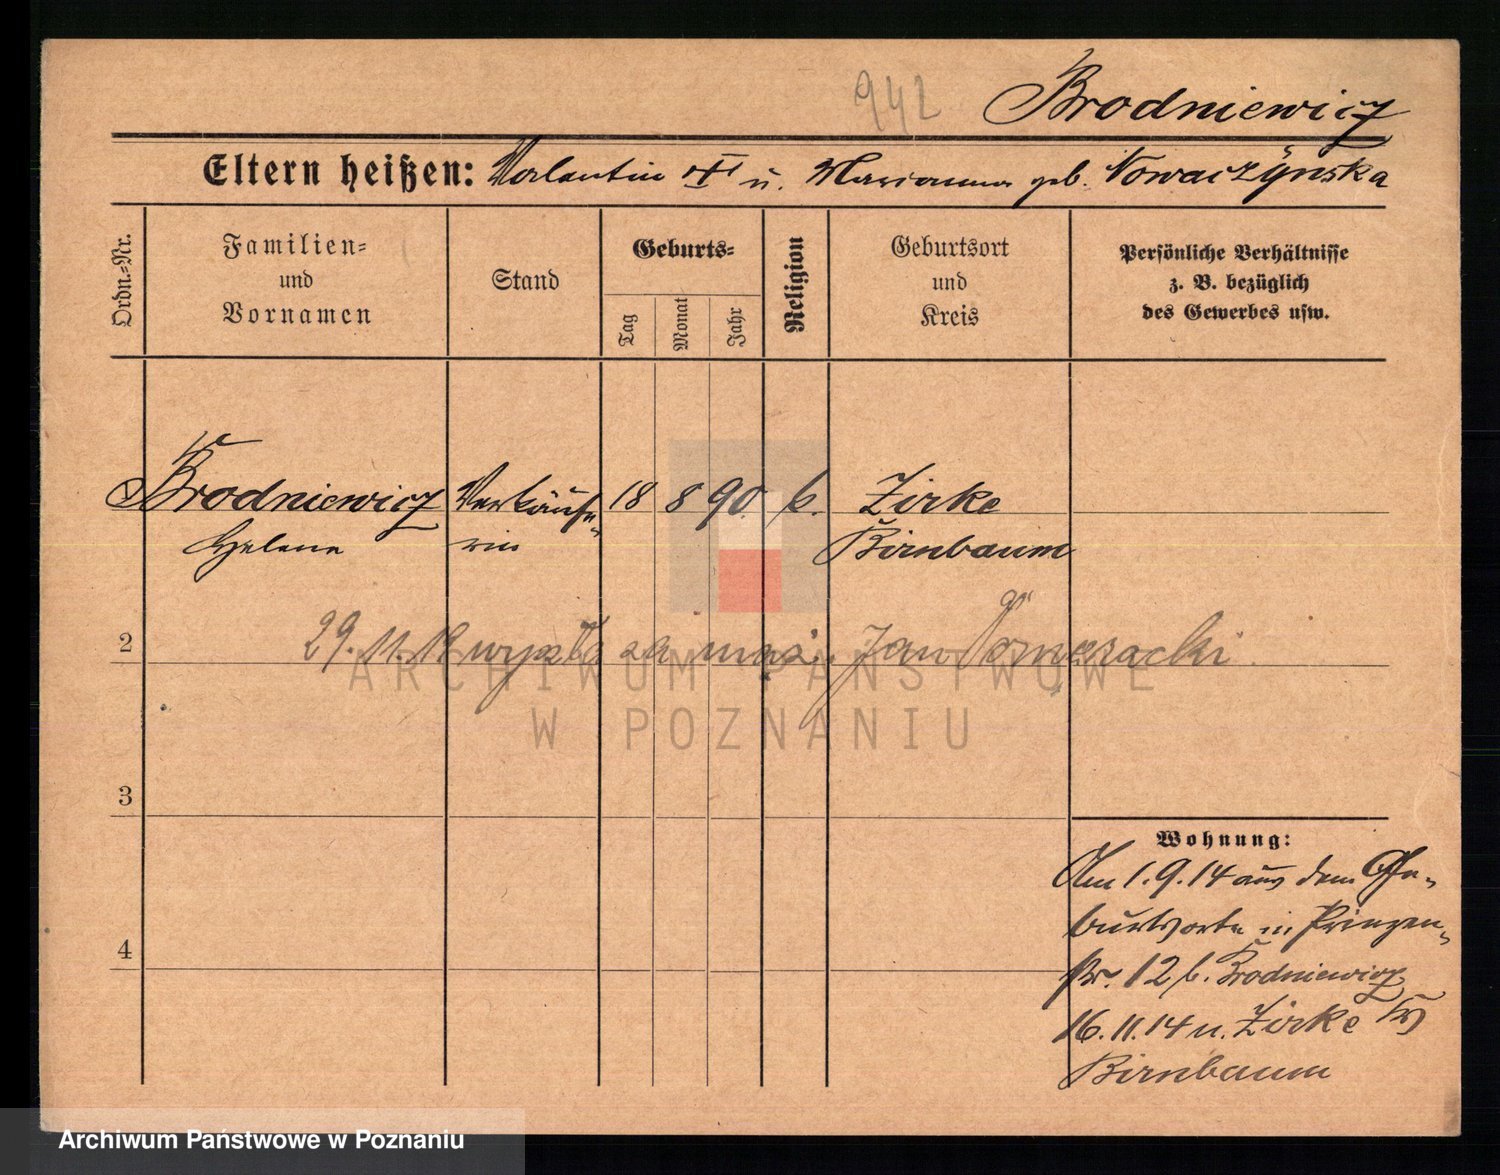 942
Brodniewicz
Eltern heißen: Valentin † u. Marianna geb. Nowaczÿnska
Ordn.=Nr.
Familien=
und
Vornamen
Stand
Geburts=
Tag
Monat
Jahr
Religion
Geburtsort
und
Kreis
Persönliche Verhältnisse
z. B. bezüglich
des Gewerbes usw.
Brodniewicz Verkäufe- 18 8 90. k. Zirke
Helene rin Birnbaum
2
29. 11. 19 wyszła za mąż Jan Pomeracki
ARCHIWUM PAŃSTWOWE
W POZNANIU
3
Wohnung:
Am 1.9.14 aus dem Ge-
burtsorte in Prinzen-
str. 12 b. Brodniewicz
16.11.14 n. Zirke Krs
4
Birnbaum
Archiwum Państwowe w Poznaniu